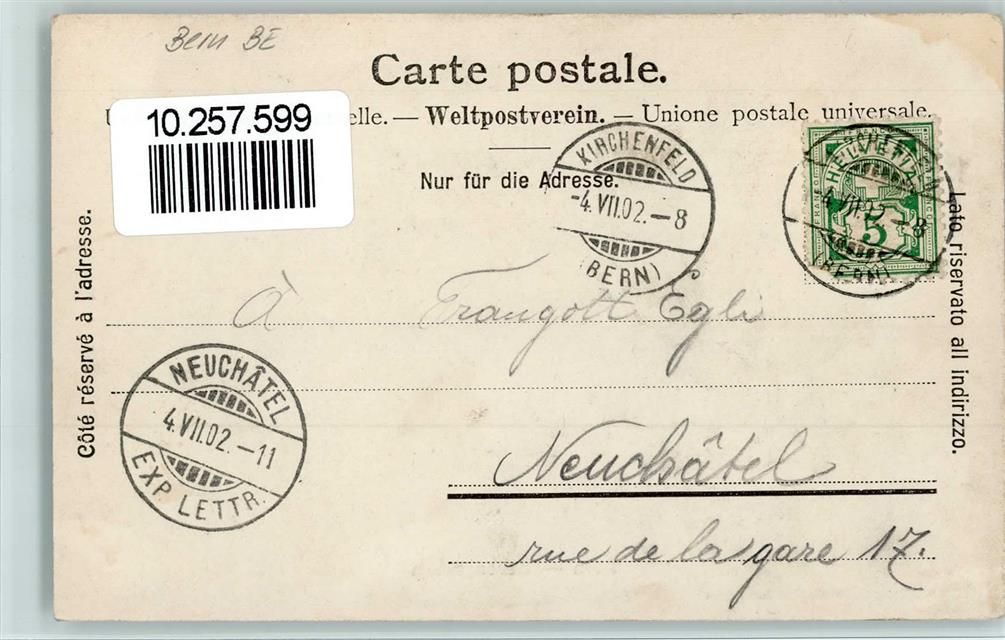 Bern BE
Carte postale.
10.257.599
elle. — Weltpostverein. — Unione postale universale.
Nur für die Adresse.
KIRCHENFELD
-4.VII.02.-8
(BERN)
HELVETIA
5
4.VII.02.-8
(BERN)
Côté réservé à l'adresse.
Lato riservato all indirizzo.
À Traugott Egli
NEUCHÂTEL
4.VII.02.-11
EXP. LETTR.
Neuchâtel
rue de la gare 17.